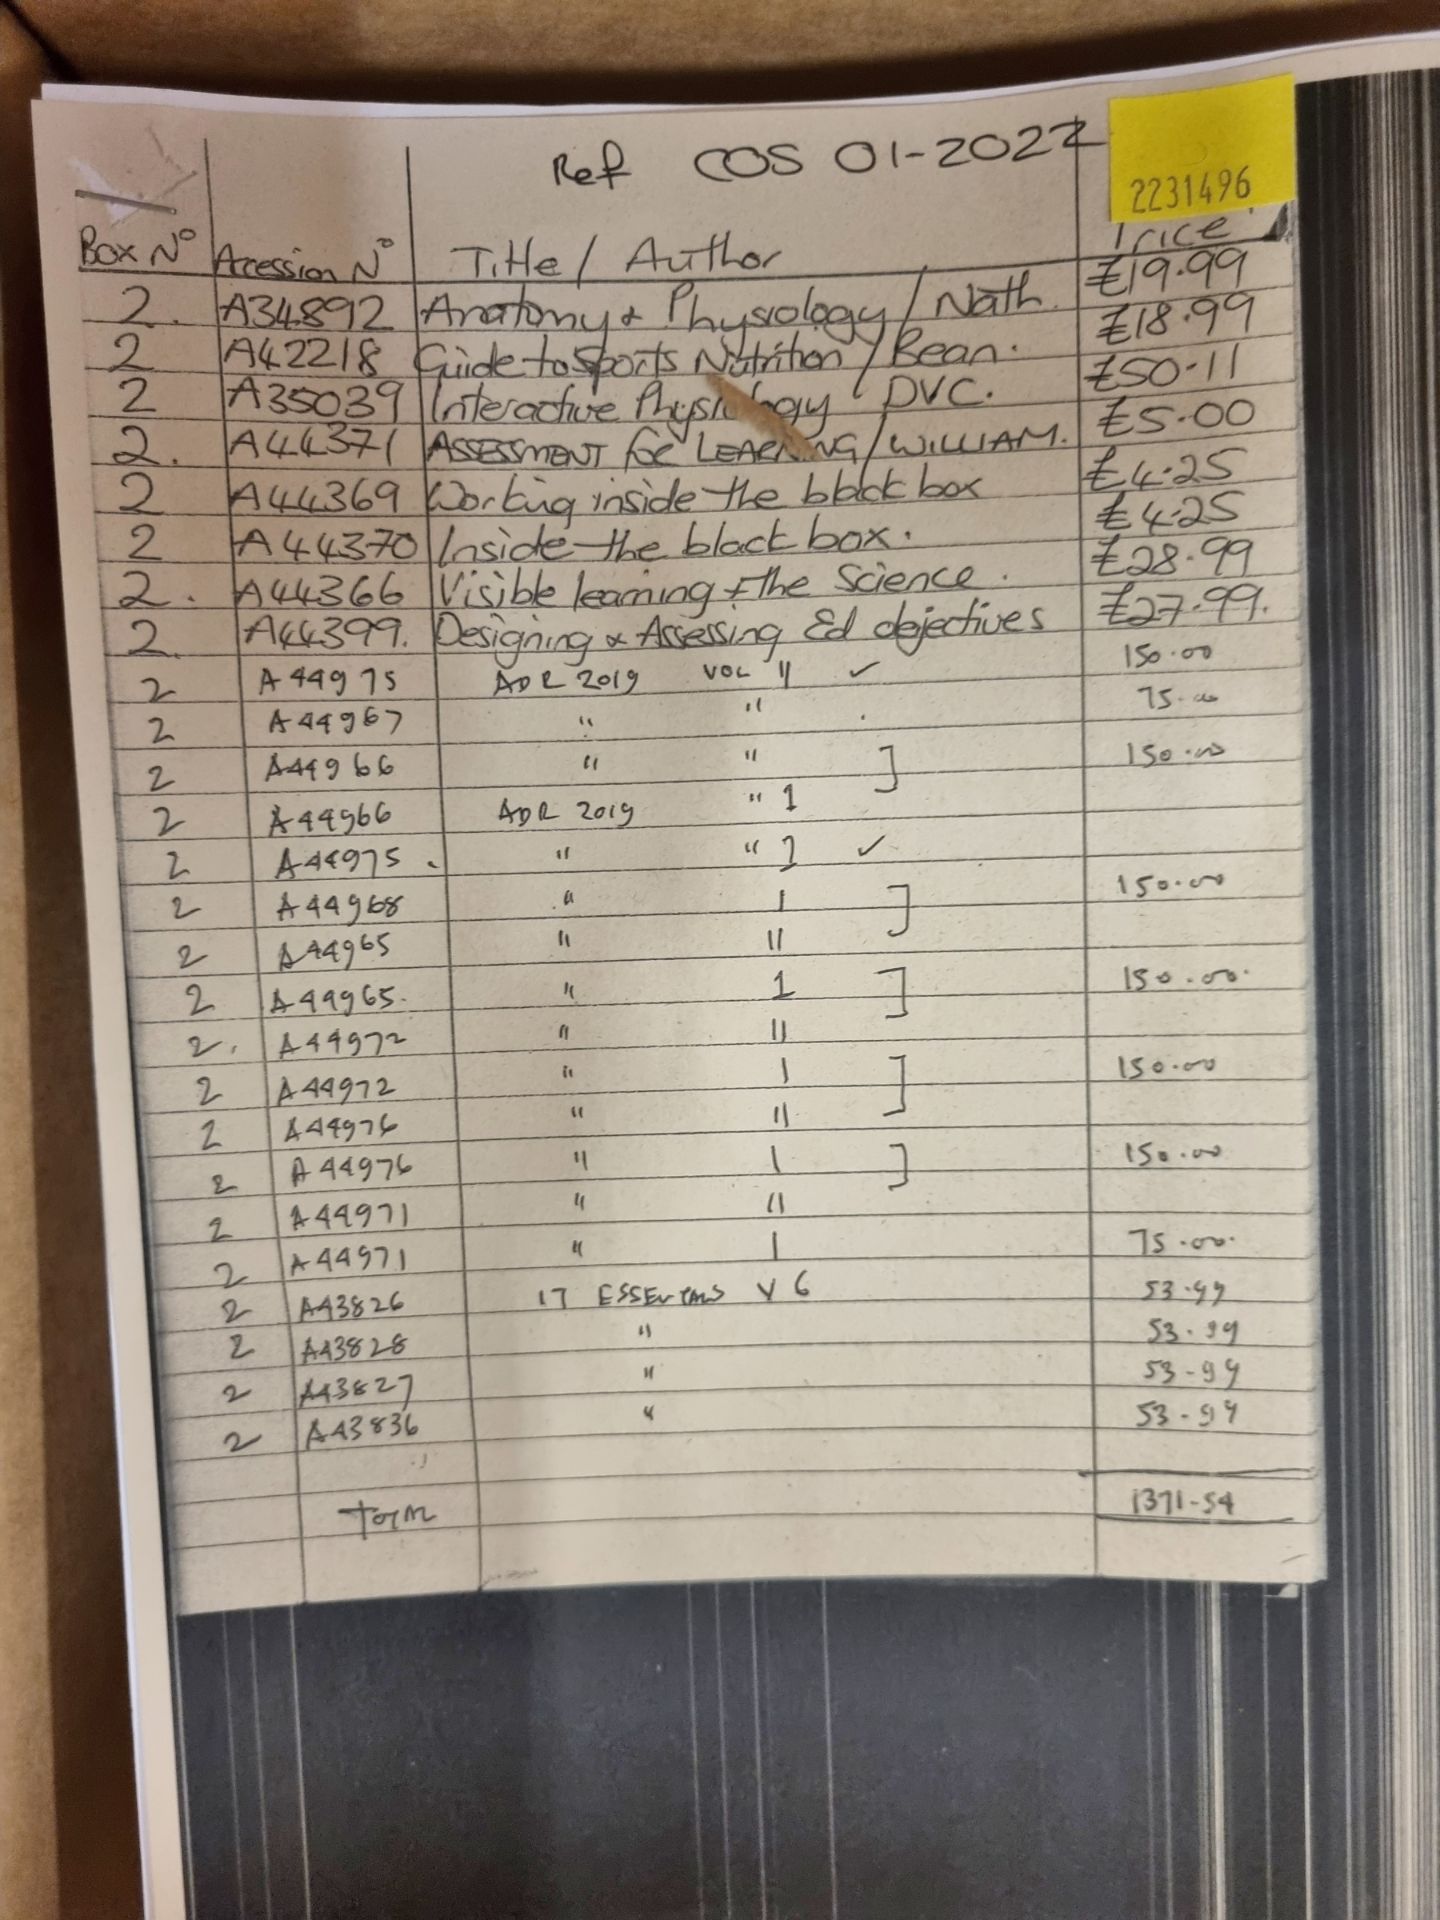 Ref COS 01-2022
2231496
Box No Accession No Title / Author Price
2. A34892 Anatomy & Physiology / Nath. £19.99
2 A42218 Guide to Sports Nutrition / Bean. £18.99
2 A35039 Interactive Physiology DVC. £50.11
2. A44371 ASSESSMENT for LEARNING / WILLIAM. £5.00
2 A44369 Working inside the black box £4.25
2 A44370 Inside the black box. £4.25
2. A44366 Visible learning & the Science. £28.99
2. A44399. Designing & Assessing Ed objectives £27.99.
2 A44975 ADR 2019 VOL 11 ✓ 150.00
2 A44967 " " 75.00
2 A44966 " " ] 150.00
2 A44966 ADR 2019 " 1
2 A44975 " " 1 ✓
2 A44968 " 1 ] 150.00
2 A44965 " 11
2 A44965. " 1 ] 150.00.
2. A44972 " 11
2 A44972 " 1 ] 150.00
2 A44976 " 11
2 A44976 " 1 ] 150.00
2 A44971 " 11
2 A44971 " 1 75.00.
2 A43826 17 ESSENTIALS V 6 53.99
2 A43828 " 53.99
2 A43827 " 53.99
2 A43836 " 53.99
TOTAL 1371-54